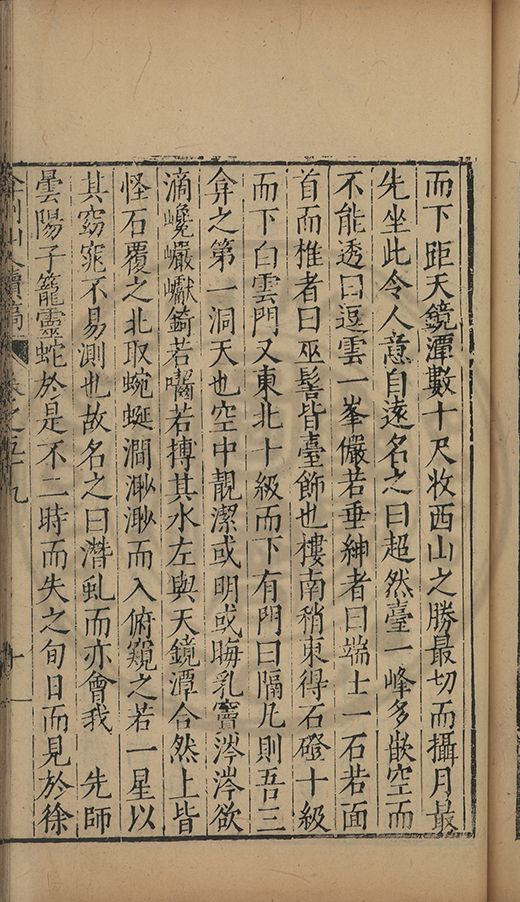 而下距天鏡潭數十尺收西山之勝最切而攝月最
先坐此令人意自遠名之曰超然臺一峰多嵌空而
不能透曰逗雲一峯儼若垂紳者曰端士一石若面
首而椎者曰巫髻皆臺飾也樓南稍東得石磴十級
而下白雲門又東北十級而下有門曰隔凡則吾三
弇之第一洞天也空中靚潔或明或晦乳竇涔涔欲
滴巉巖巘錡若囓若搏其水左與天鏡潭合然上皆
怪石覆之北取蜿蜒澗渺渺而入俯窺之若一星以
其窈窕不易測也故名之曰潛虬而亦會我 先師
曇陽子籠靈蛇於是不二時而失之旬日而見於徐
弇州山人續稿 卷之五十九 十